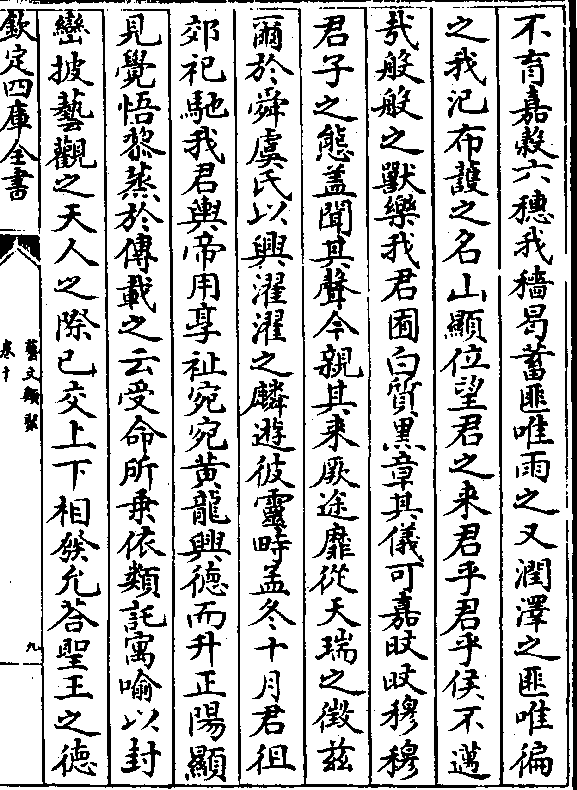 不育嘉榖六穗我穡曷蓄匪唯雨之又潤澤之匪唯徧
之我汜布護之名山顯位望君之来君乎君乎侯不邁
哉般般之獸樂我君囿白質黒章其儀可嘉旼旼穆穆
君子之態盖聞其聲今親其来厥途靡從天瑞之徴兹
爾於舜虞氏以興濯濯之麟遊彼靈畤孟冬十月君徂
郊祀馳我君輿帝用享祉宛宛黄龍興徳而升正陽顯
見覺悟黎蒸於傳載之云受命所乗依類託寓喻以封
巒披藝觀之天人之際已交上下相發允荅聖王之徳
欽定四庫全書
藝文類聚
卷十
九